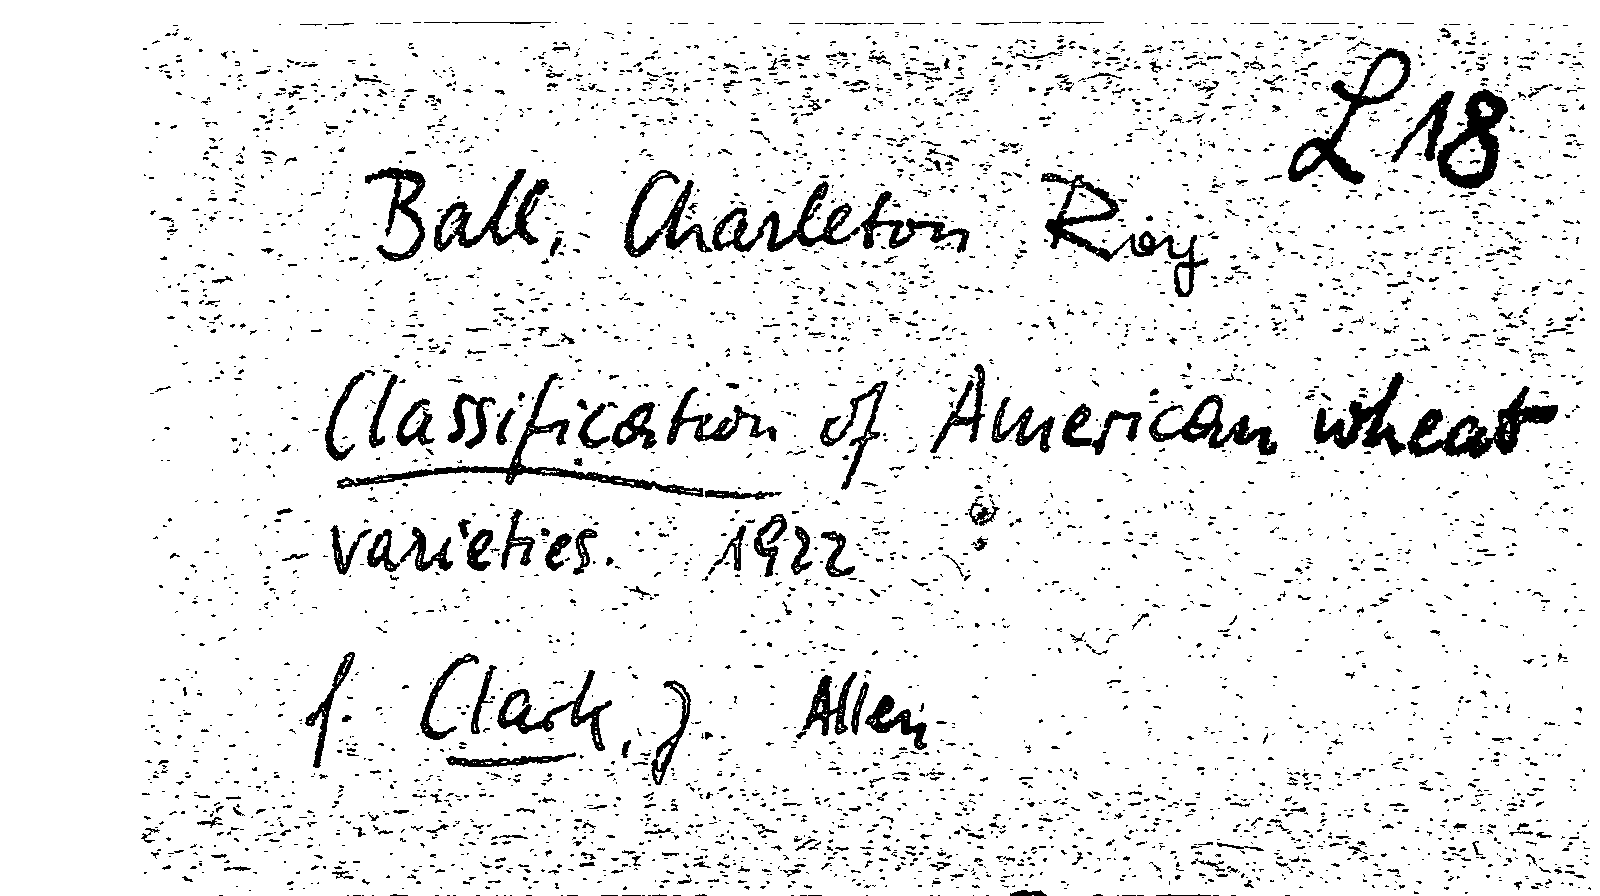 L 18
Ball, Charleton Roy
Classification of American wheat
varieties. 1922
s. Clark, J. Allen